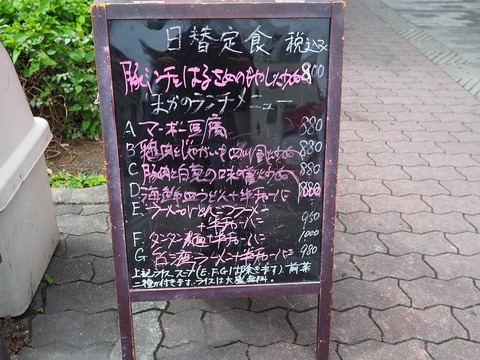 日替定食 税込
豚ミンチとはるさめのピリ辛炒め 800
ほかのランチメニュー
A マーボー豆腐 880
B 鶏肉とじゃがいもの四川風炒め 880
C 豚肉と白菜の味噌炒め 880
D 海鮮皿うどん+半チャーハン
E. ラーメン
+半チャーハン 950
F. タンタン麺+半チャーハン 1,000
G 台湾ラーメン+半チャーハン 980
上記ライス、スープ(E.F.G.は除きます)、前菜
二種が付きます。ライスは大盛無料。